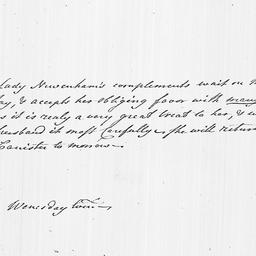 Lady Newenham's complements wait on
& accepts his obliging favor with many
as it is realy a very great treat to her, &
husband it most carefully, she will return
Canister to morrow
Wensday